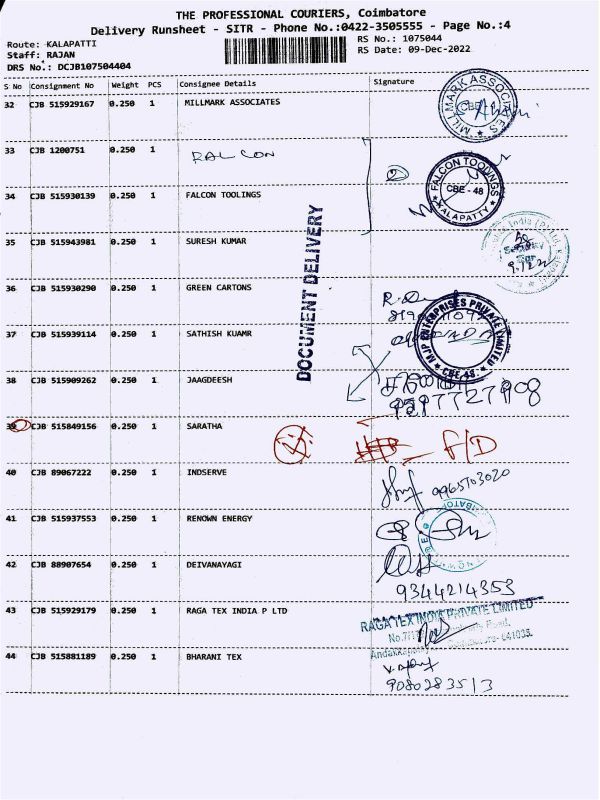 THE PROFESSIONAL COURIERS, Coimbatore
Delivery Runsheet - SITR - Phone No.:0422-3505555 - Page No.:4
Route: KALAPATTI
Staff: RAJAN
DRS No.: DCJB107504404
RS No.: 1075044
RS Date: 09-Dec-2022
S No Consignment No Weight PCS Consignee Details Signature
32 CJB 515929167 0.250 1 MILLMARK ASSOCIATES
MILLMARK ASSOCIATES
CBE
33 CJB 1200751 0.250 1 RALCON
34 CJB 515930139 0.250 1 FALCON TOOLINGS
FALCON TOOLINGS
CBE - 48
KALAPATTY
35 CJB 515943981 0.250 1 SURESH KUMAR
Security
DOCUMENT DELIVERY
36 CJB 515930290 0.250 1 GREEN CARTONS
37 CJB 515939114 0.250 1 SATHISH KUAMR
MJP ENTERPRISES PRIVATE LIMITED
CBE-48.
38 CJB 515909262 0.250 1 JAAGDEESH
39 CJB 515849156 0.250 1 SARATHA
F/D
40 CJB 89067222 0.250 1 INDSERVE
9965703020
41 CJB 515937553 0.250 1 RENOWN ENERGY
42 CJB 88907654 0.250 1 DEIVANAYAGI
9344214353
43 CJB 515929179 0.250 1 RAGA TEX INDIA P LTD
RAGA TEX INDIA PRIVATE LIMITED
641035.
44 CJB 515881189 0.250 1 BHARANI TEX
9080283513